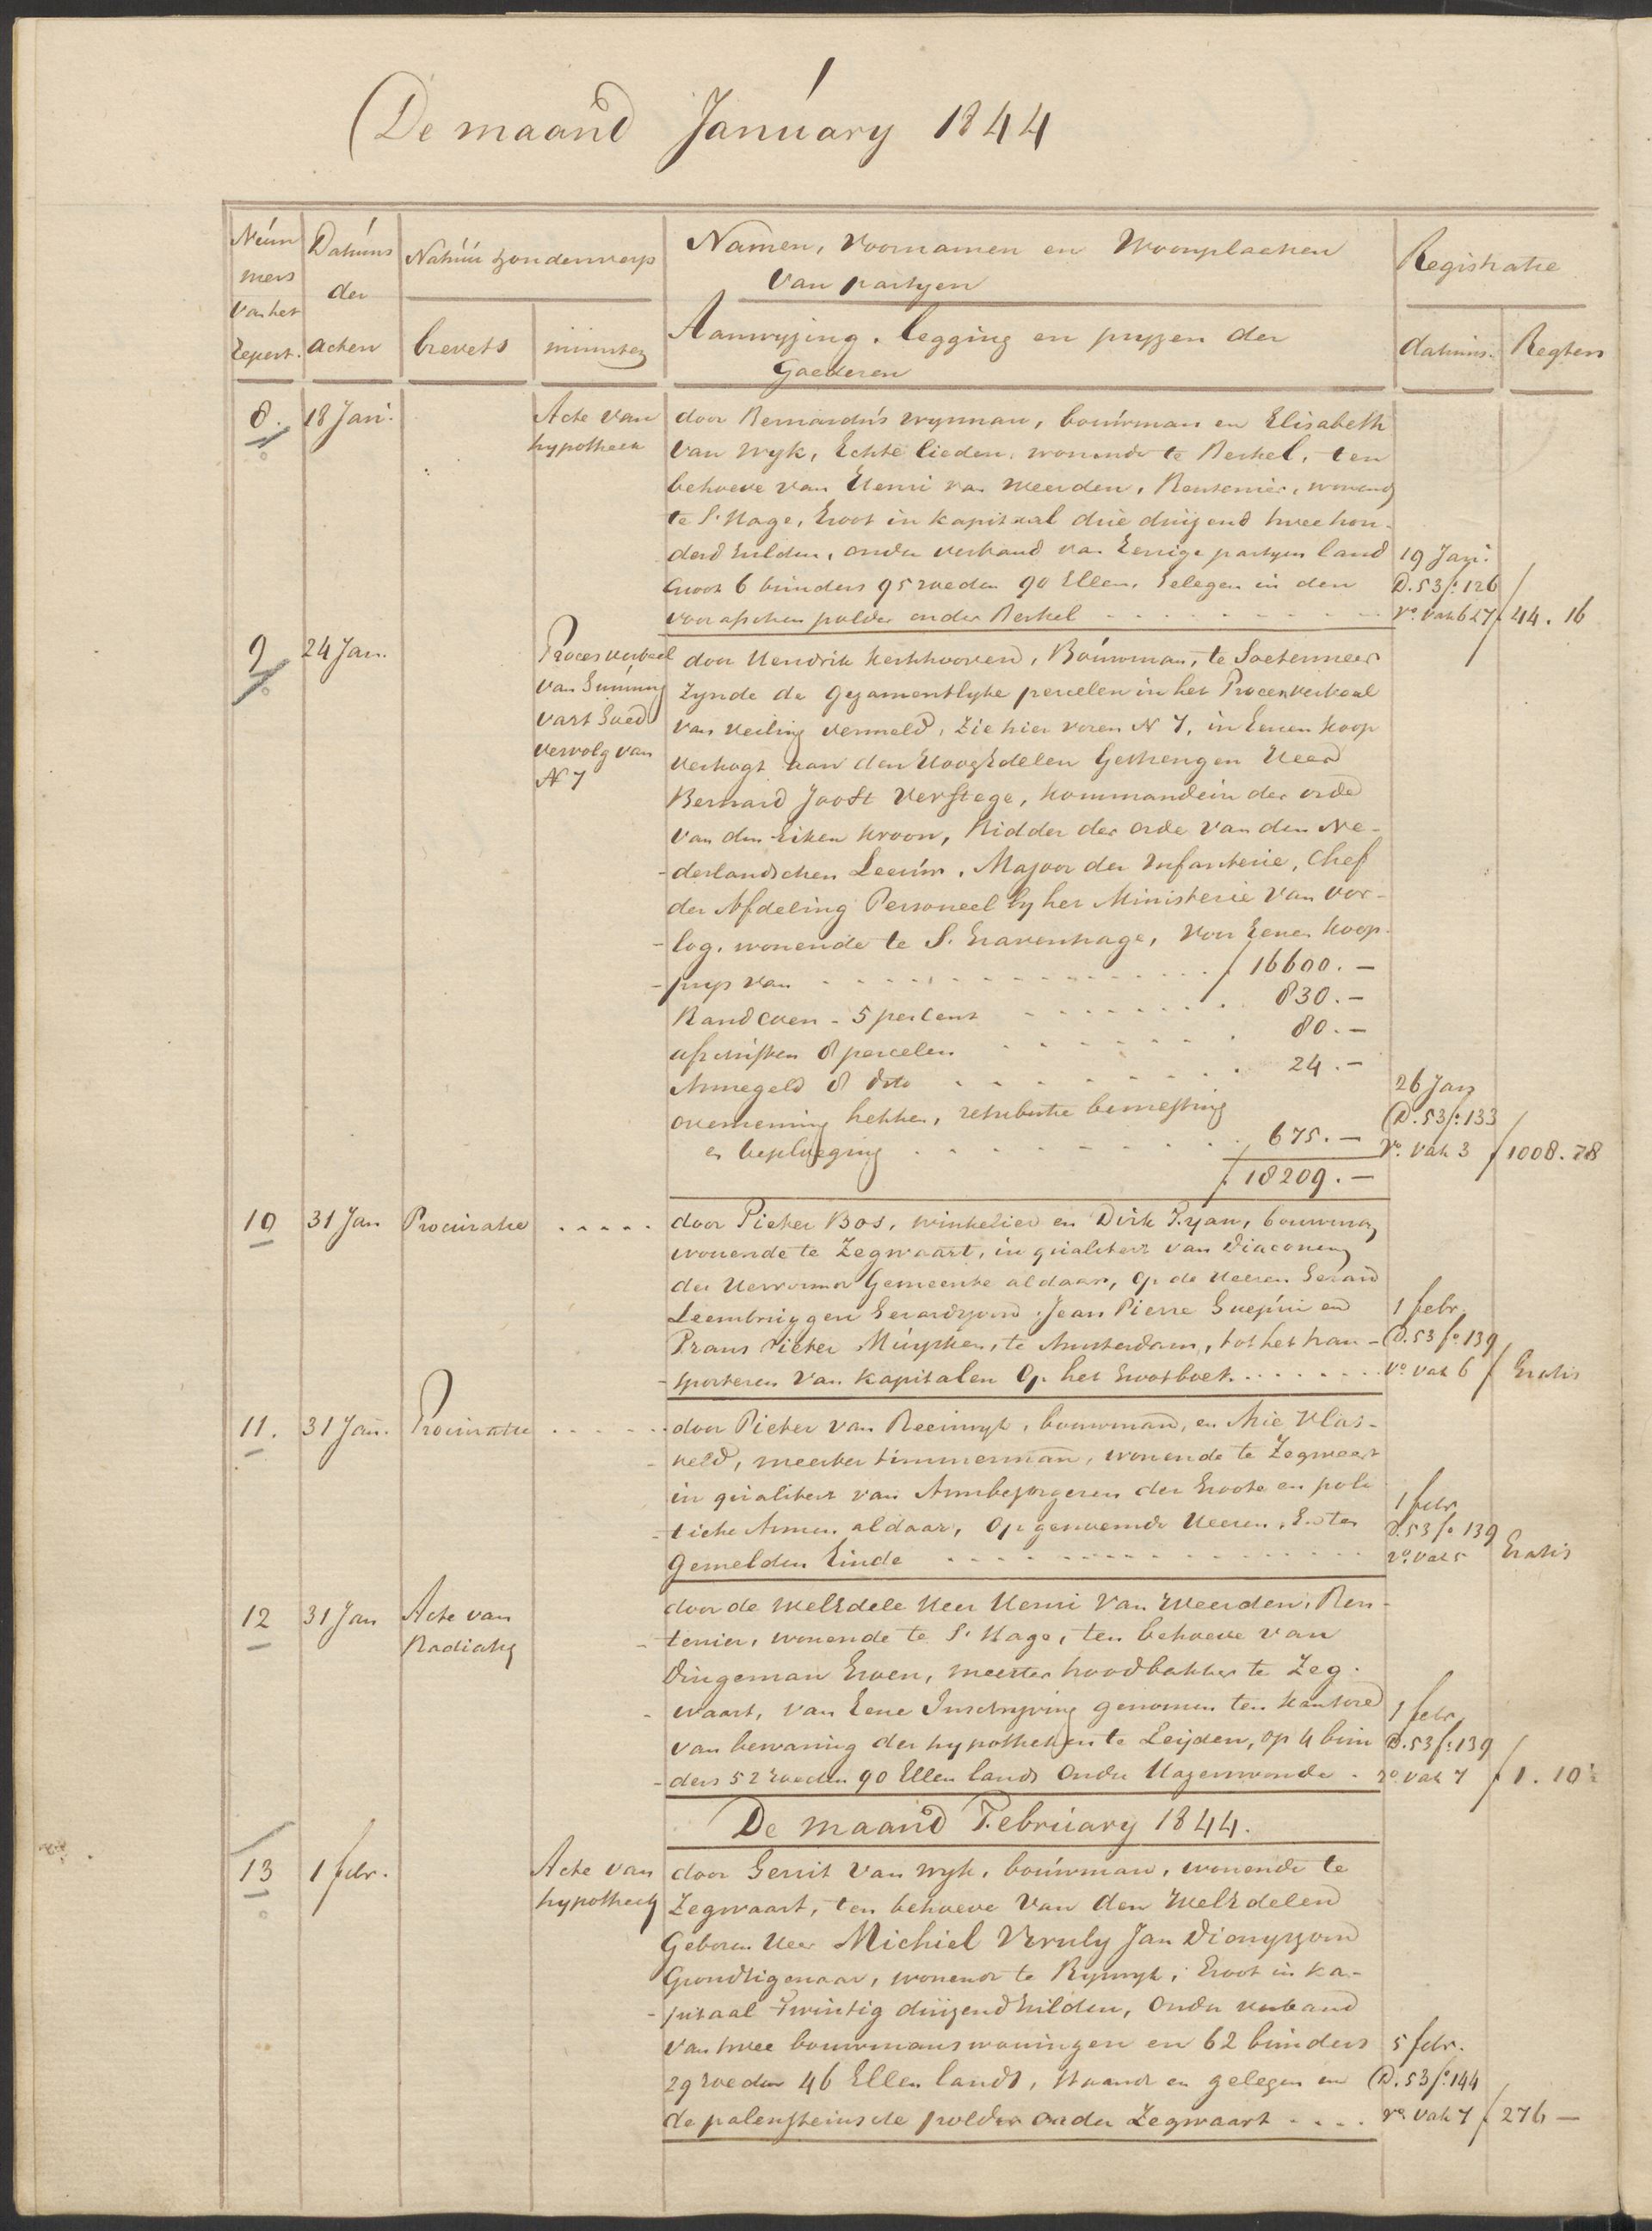 De maand January 1844
Num
mers
van het
Repert.
Datums
der
acten
Natuur & onderwerp
brevets
minuten
Namen, Voornamen en Woonplaatsen
van partyen
Aanwyzing, legging en pryzen der
Goederen
Registratie
datums. Regten
8. 18 Jan.
Acte van
hypotheek
door Bernardus Wynman, bouwman en Elisabeth
van Wyk, Echte lieden, wonende te Berkel, ten
behoeve van Henri van Weerden, Rentenier, wonend
te S. Hage, Groot in kapitaal drie duizend twee hon-
derd Gulden, onder verband van Eenige partyen land
Groot 6 bunders 95 roeden 90 Ellen, Gelegen in den
Voorafschen polder onder Berkel
19 Jan.
D. 53 f.o 126
v.o vak 6 & 7 f 44. 16
9 24 Jan.
Proces verbaal
van Gunning
vast Goed
vervolg van
N 7
door Hendrik Kerkhoven, Bouwman, te Soetermeer
Zynde de gezamentlyke percelen in het Procesverbaal
van veiling vermeld, Zie hier voren N 7, in Eenen koop
verkogt aan den HoogEdelen Gestrengen Heer
Bernard Joost Verstege, kommandeur der orde
van den Eiken kroon, Ridder der orde van den Ne-
-derlandschen Leeuw, Majoor der Infanterie, Chef
der Afdeling Personeel by het Ministerie van Oor-
-log, wonende te S. Gravenhage, Voor Eenen koop-
-prys van f 16600. -
Randcoen - 5 percent 830. -
afschriften 8 percelen 80. -
Armegeld 8 dito 24. -
overneming hekken, retributie bemesting
en beploeging 675. -
f 18209. -
26 Jan
D. 53 f.o 133
v.o vak 3 f 1008. 78
10 31 Jan Procuratie
door Pieter Bos, winkelier en Dirk Ryan, bouwman
wonende te Zegwaart, in qualiteit van Diaconen
der Hervormde Gemeente aldaar, op de Heeren Gerard
Leembruggen Gerardzoon, Jean Pierre Guépin en
Frans Pieter Muysken, te Amsterdam, tot het tran-
-sporteren van kapitalen op het Grootboek
1 febr.
D. 53 f.o 139
v.o vak 6 f Gratis
11. 31 Jan. Procuratie
door Pieter van Reeuwyk, bouwman, en Arie Vlas-
-veld, meester timmerman, wonende te Zegwaart
in qualiteit van Armbezorgeren der Groote en poli
-tieke Armen aldaar, op genoemde Heeren, En ten
gemelden Einde
1 febr.
D. 53 f.o 139
v.o vak 5 Gratis
12 31 Jan Acte van
Radiatie
door de WelEdele Heer Henri van Weerden, Ren-
-tenier, wonende te S. Hage, ten behoeve van
Dingeman Groen, meester broodbakker te Zeg-
-waart, van Eene Inschryving genomen ten kantore
van bewaring der hypotheken te Leyden, op 4 bun
-ders 52 roeden 90 Ellen lands onder Hazerswoude
1 febr.
D. 53 f.o 139
v.o vak 7 f 1. 10½
De maand February 1844.
13 1 febr.
Acte van
hypotheek
door Gerrit van Wyk, bouwman, wonende te
Zegwaart, ten behoeve van den WelEdelen
Geboren Heer Michiel Vruly Jan Dionyszoon
Grondeigenaar, wonende te Ryswyk, Groot in ka-
-pitaal twintig duizend Gulden, onder verband
van twee bouwmanswoningen en 62 bunders
29 roeden 46 Ellen lands, staande en gelegen in
de palensteinsche polder onder Zegwaart
5 febr.
D. 53 f.o 144
v.o vak 7 f 276 -